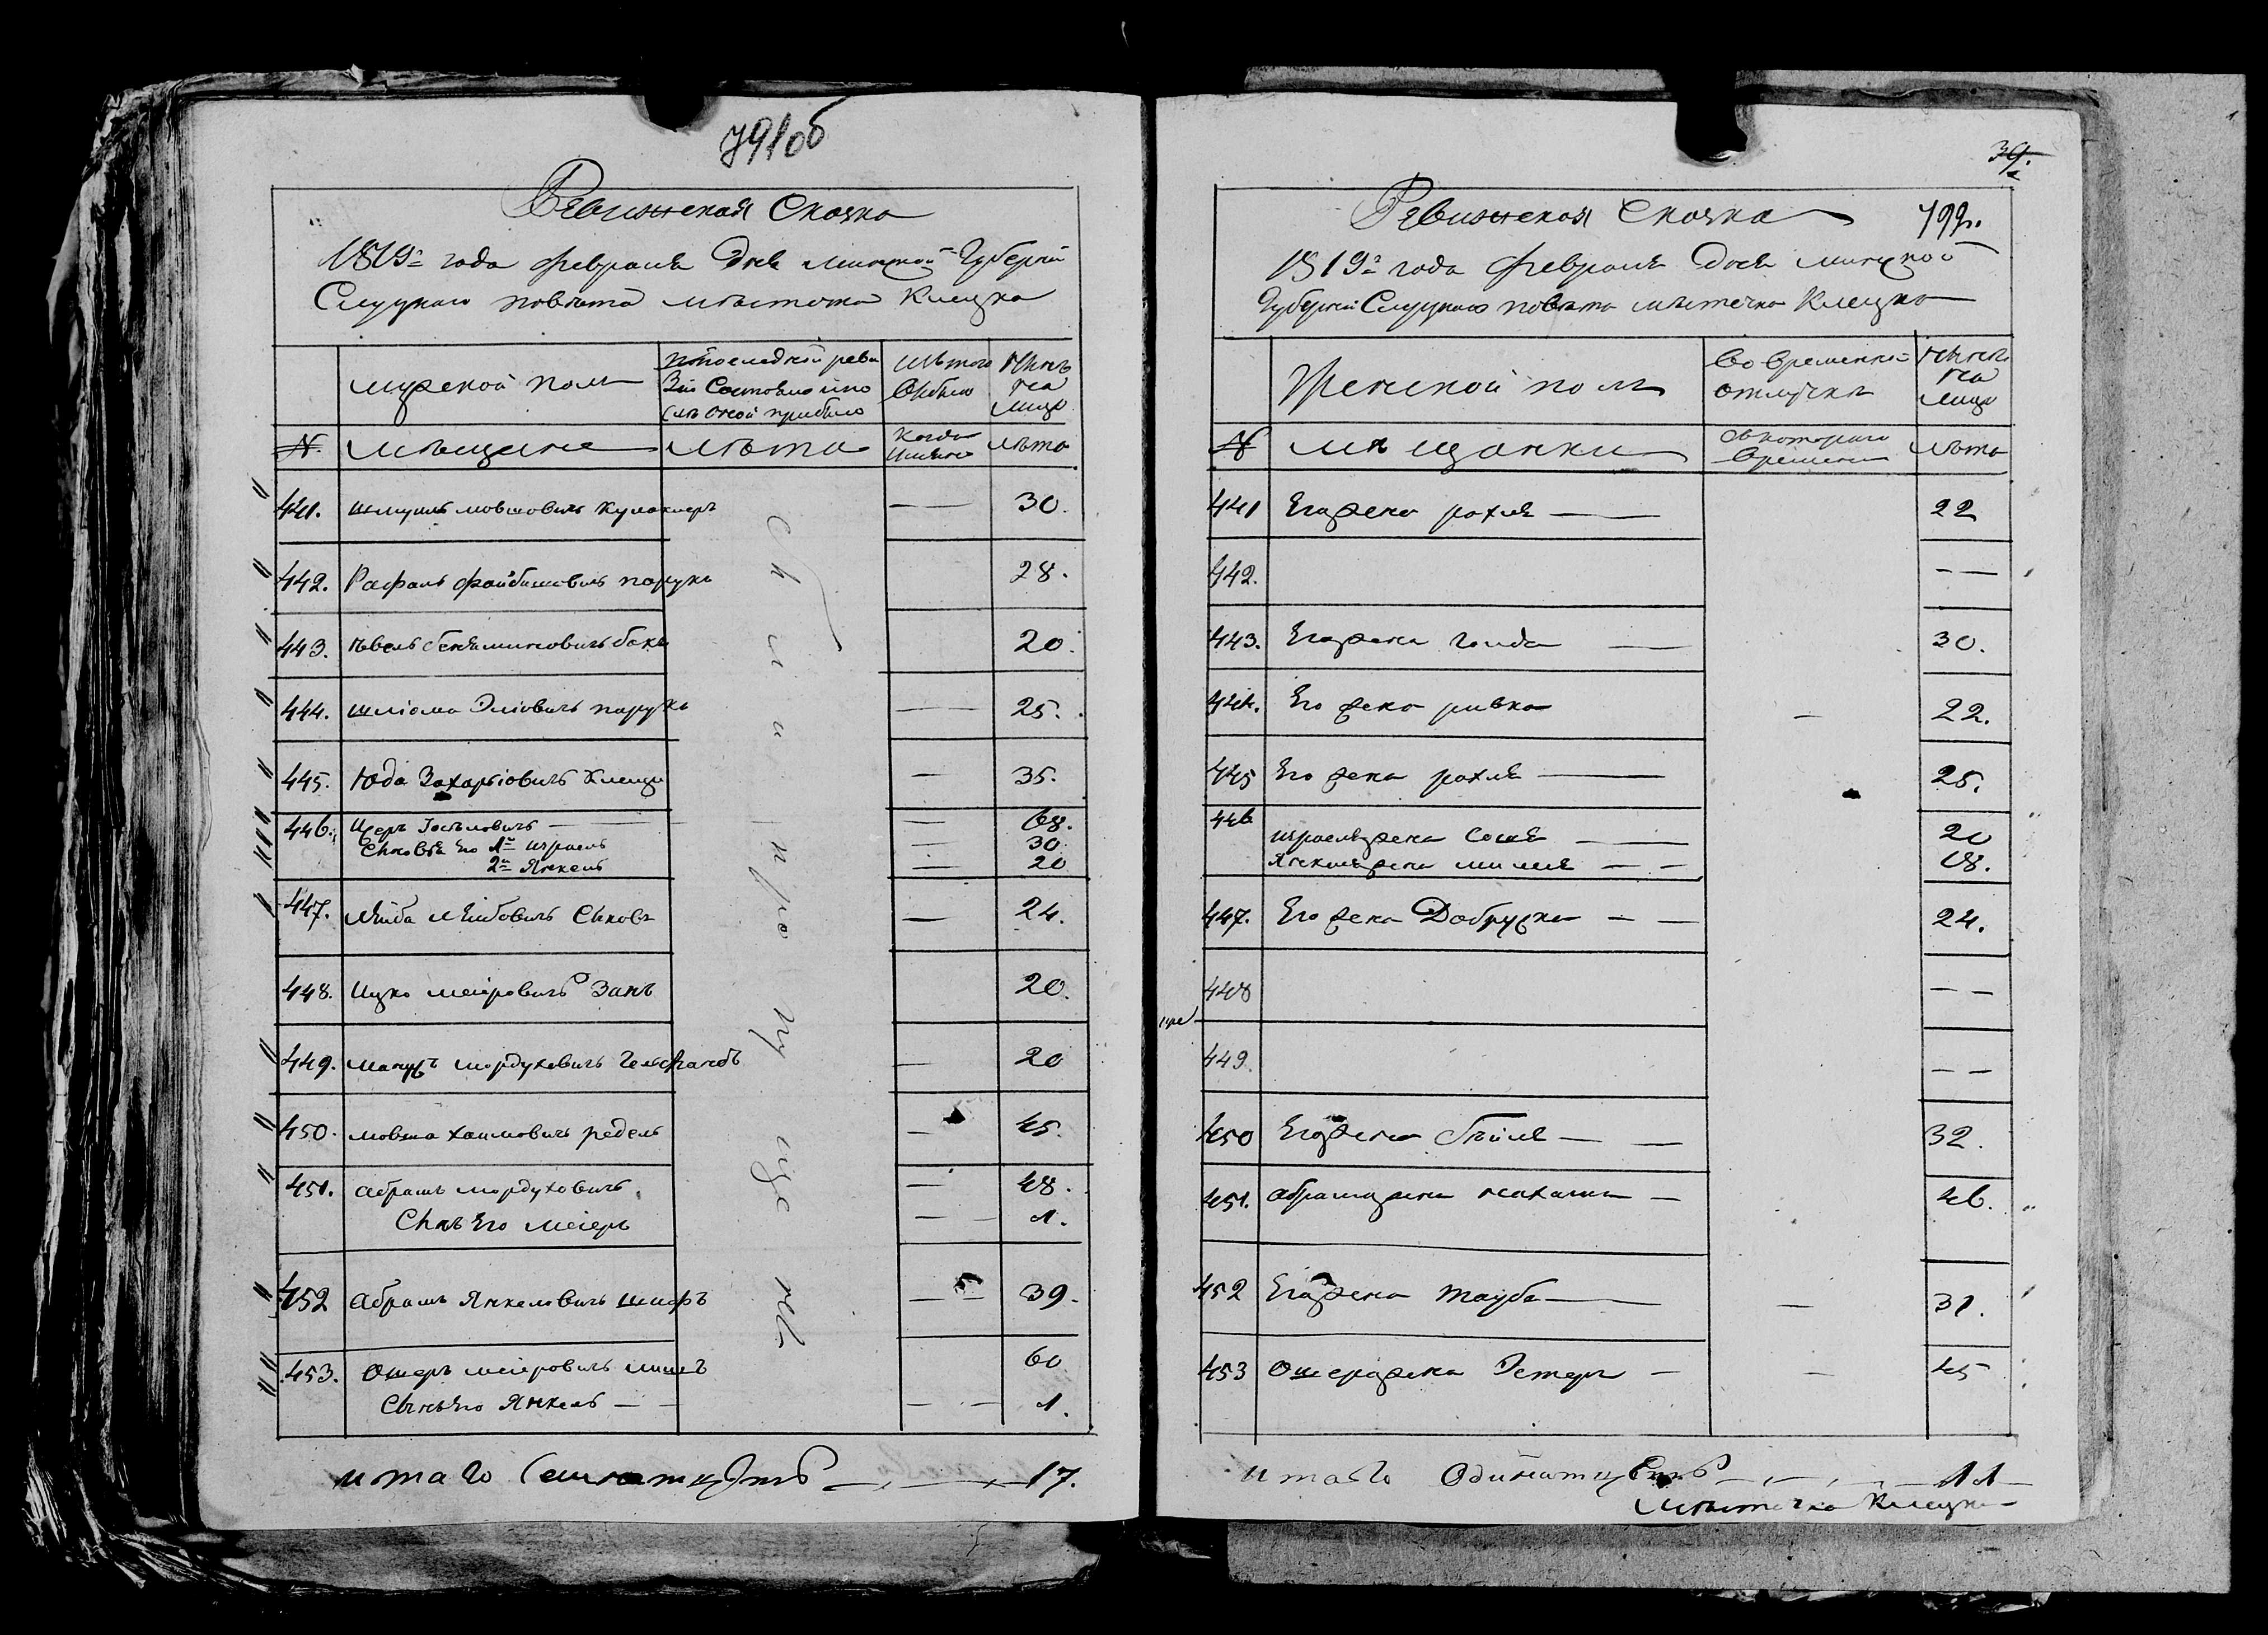 791об
Ревижская Сказка
1819го года февраля дня минской Губерній
Слуцкаго повѣта мѣстечка Клецка
мужской полъ
По последней реви
зіи Состояло и по
слѣ оной прибыло
Изъ того
Выбыло
Нынѣ
на
лицо
№ мѣщане лѣта Когда
имянно лѣта
441. шмуиль мовшовичъ 30.
442. Рафаль файбишовичъ парукъ 28.
443. бениаминовичъ 20.
444. шліома Эліовичъ парукъ 25.
445. Юда Захаріовичъ 35.
446. 68.
Сыновья его 1й израель 30
2й Янкель 20
447. лейба лейбовичъ Сыновъ 24.
448. Ицко меіеровичъ Закъ 20.
449. мордуховичъ Гельфандъ 20
450. мовша хаимовичъ редель 45.
451. абрамъ мордуховичъ 48.
Сынъ его меіеръ 1.
452 абрамъ Янкеловичъ шифъ 39.
453. Ошеръ меіеровичъ 60
Сынъ его Янкель 1.
Съ и а пропущены
итаго Семнатцэть 17.
39.
Ревижская Сказка 792.
1819го года февраля дня минской
Губерній Слуцкаго повѣта мѣстечка Клецка
Женской полъ
Во временной
отлучкѣ
Нынѣ
на
лицо
№ мѣщанки Съ котораго
времени лѣта
441 Его жена рохля 22
442.
443. Его жена голда 30.
444. Его жена ривка 22.
445 Его жена рохля 25.
446
израеля жена Сося 20
Янкеля жена 18.
447. Его жена Добруска 24.
448
449.
450 Его жена бейля 32.
451. абрама жена нахама 46.
452 Его жена тауба 31.
453 Ошера жена Эстеръ 45
итаго Одинатцеть 11
мѣстечка Клецка